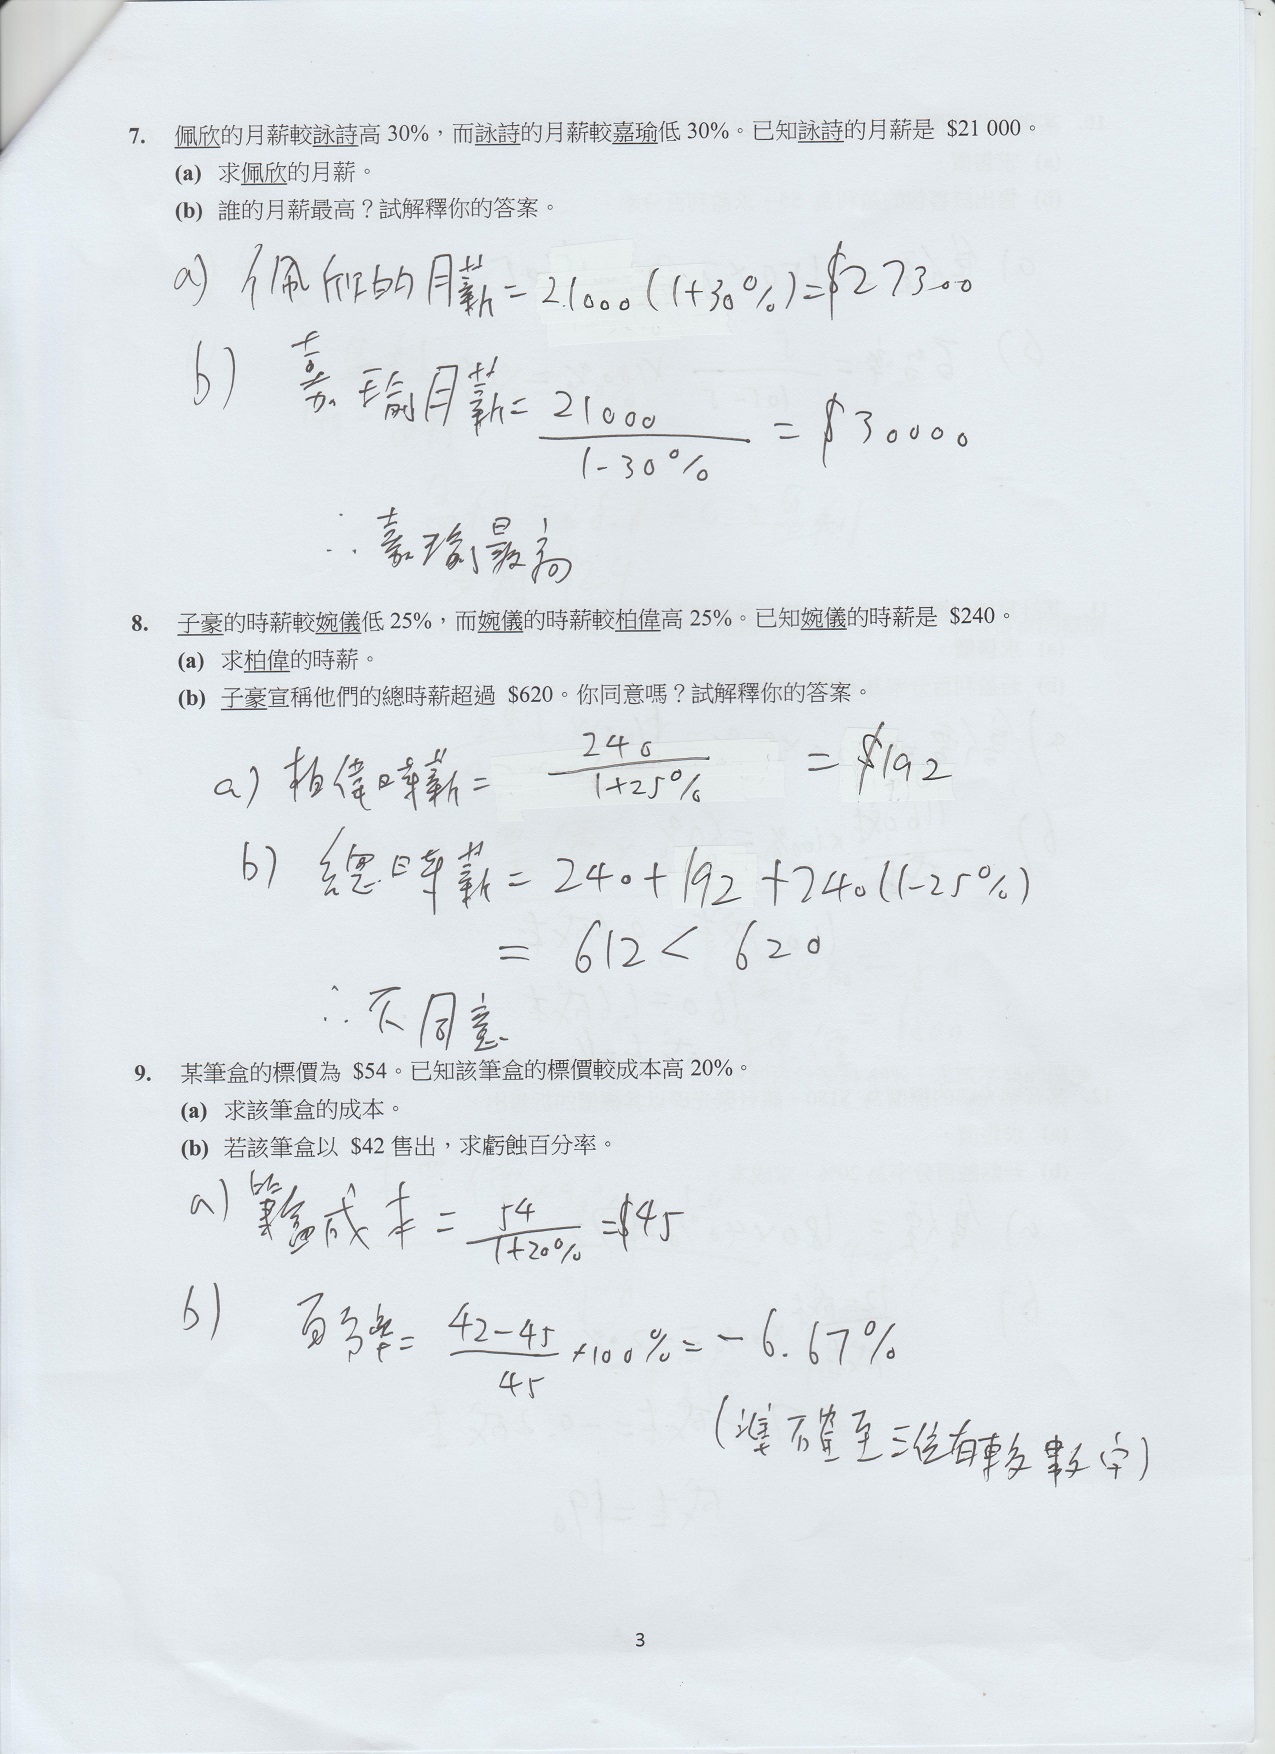 7. 佩欣的月薪較詠詩高 30%，而詠詩的月薪較嘉瑜低 30%。已知詠詩的月薪是 $21 000。
(a) 求佩欣的月薪。
(b) 誰的月薪最高？試解釋你的答案。
a) 佩欣的月薪=21000(1+30%)=$27300
b) 嘉瑜月薪=21000/(1-30%) = $30000
∴嘉瑜最高
8. 子豪的時薪較婉儀低 25%，而婉儀的時薪較柏偉高 25%。已知婉儀的時薪是 $240。
(a) 求柏偉的時薪。
(b) 子豪宣稱他們的總時薪超過 $620。你同意嗎？試解釋你的答案。
a) 柏偉時薪= 240/(1+25%) = $192
b) 總時薪=240+192+240(1-25%)
= 612 < 620
∴不同意
9. 某筆盒的標價為 $54。已知該筆盒的標價較成本高 20%。
(a) 求該筆盒的成本。
(b) 若該筆盒以 $42 售出，求虧蝕百分率。
a) 筆盒成本 = 54/(1+20%) =$45
b) 百分率= (42-45)/45 ×100% = -6.67%
(準確至三位有效數字)
3